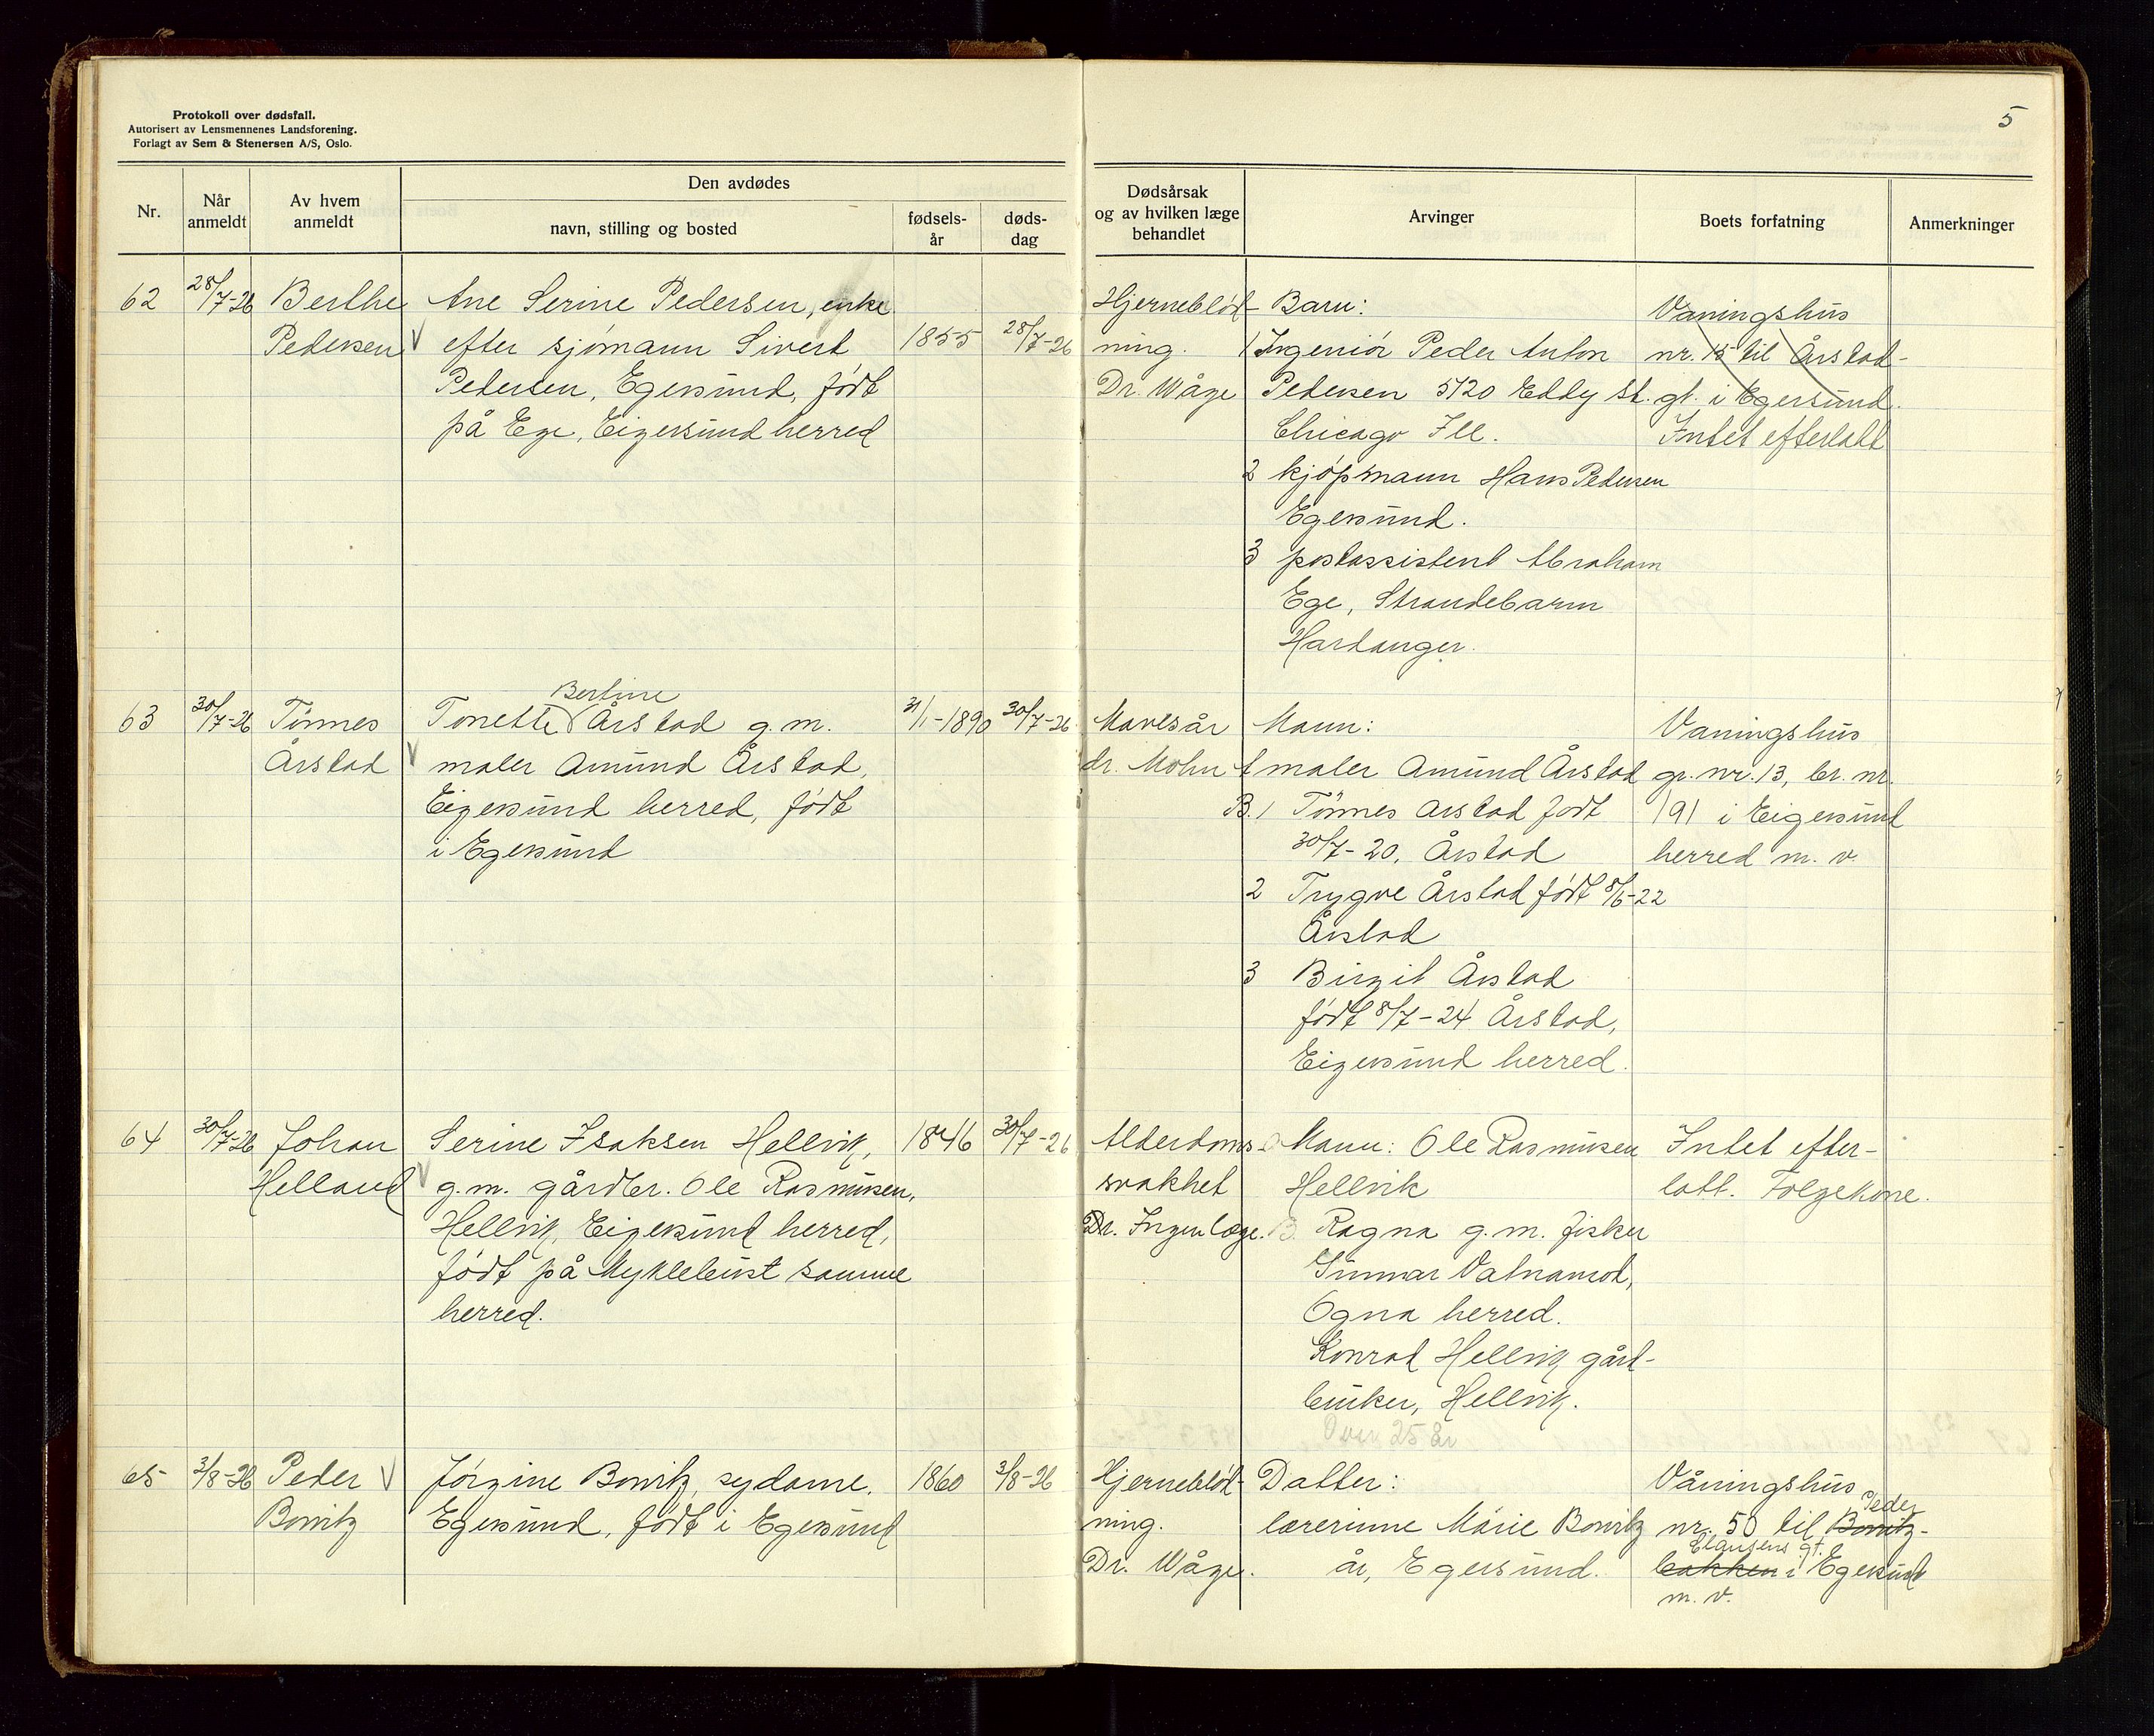 Protokoll over dødsfall.
Autorisert av Lensmennenes Landsforening.
Forlagt av Sem & Stenersen A/S, Oslo.
5
Nr.
Når
anmeldt
Av hvem
anmeldt
Den avdødes
navn, stilling og bosted
fødsels-
år
døds-
dag
Dødsårsak
og av hvilken læge
behandlet
Arvinger
Boets forfatning
Anmerkninger
62
28/7-26
Berthe
Pedersen
Ane Serine Pedersen, enke
efter sjømann Sivert
Pedersen, Egersund, født
på Ege, Eigersund herred
1855
28/7-26
Hjerneblød-
ning.
Dr. Wåge
Barn:
1 Ingeniør Peder Anton
Pedersen 5120 Eddy St.
Chicago Ill.
2 kjøpmann Hans Pedersen
Egersund.
3 postassistent Abraham
Ege, Strandebarm
Hardanger.
Våningshus
nr. 15 til Årstad-
gt. i Egersund.
Intet efterlatt
63
30/7-26
Tønnes
Årstad
Bertine
Tonette Årstad g.m.
maler Amund Årstad,
Eigersund herred, født
i Egersund
31/1-1890
30/7-26
Mavesår
dr. Mohn
Mann:
maler Amund Årstad
B. 1 Tønnes Årstad født
30/7-20, Årstad
2 Trygve Årstad født 8/6-22
Årstad
3 Birgit Årstad
født 8/7-24 Årstad,
Eigersund herred.
Vaningshus
gr. nr. 13, br. nr.
191 i Eigersund
herred m. v.
64
30/7-26
Johan
Helland
Serine Isaksen Hellvik,
g.m. gårdbr. Ole Rasmusen,
Hellvik, Eigersund herred,
født på Myklebust samme
herred.
1846
30/7-26
Alderdoms-
svakhet
Dr. Ingen læge.
Mann: Ole Rasmusen
Hellvik
B. Ragna g.m. fisker
Gunnar Vatnamot,
Ogna herred.
Konrad Hellvik gård-
bruker, Hellvik.
Over 25 år
Intet efter-
latt. Folgekone.
65
3/8-26
Peder
Bowitz
Jørgine Bowitz, sydame.
Egersund, født i Egersund
1860
3/8-26
Hjerneblød-
ning.
Dr. Wåge.
Datter:
lærerinne Marie Bowitz
år, Egersund.
Våningshus
Peder
nr. 50 til Bowitz-
Clausens gt.
bakken i Egersund
m. v.